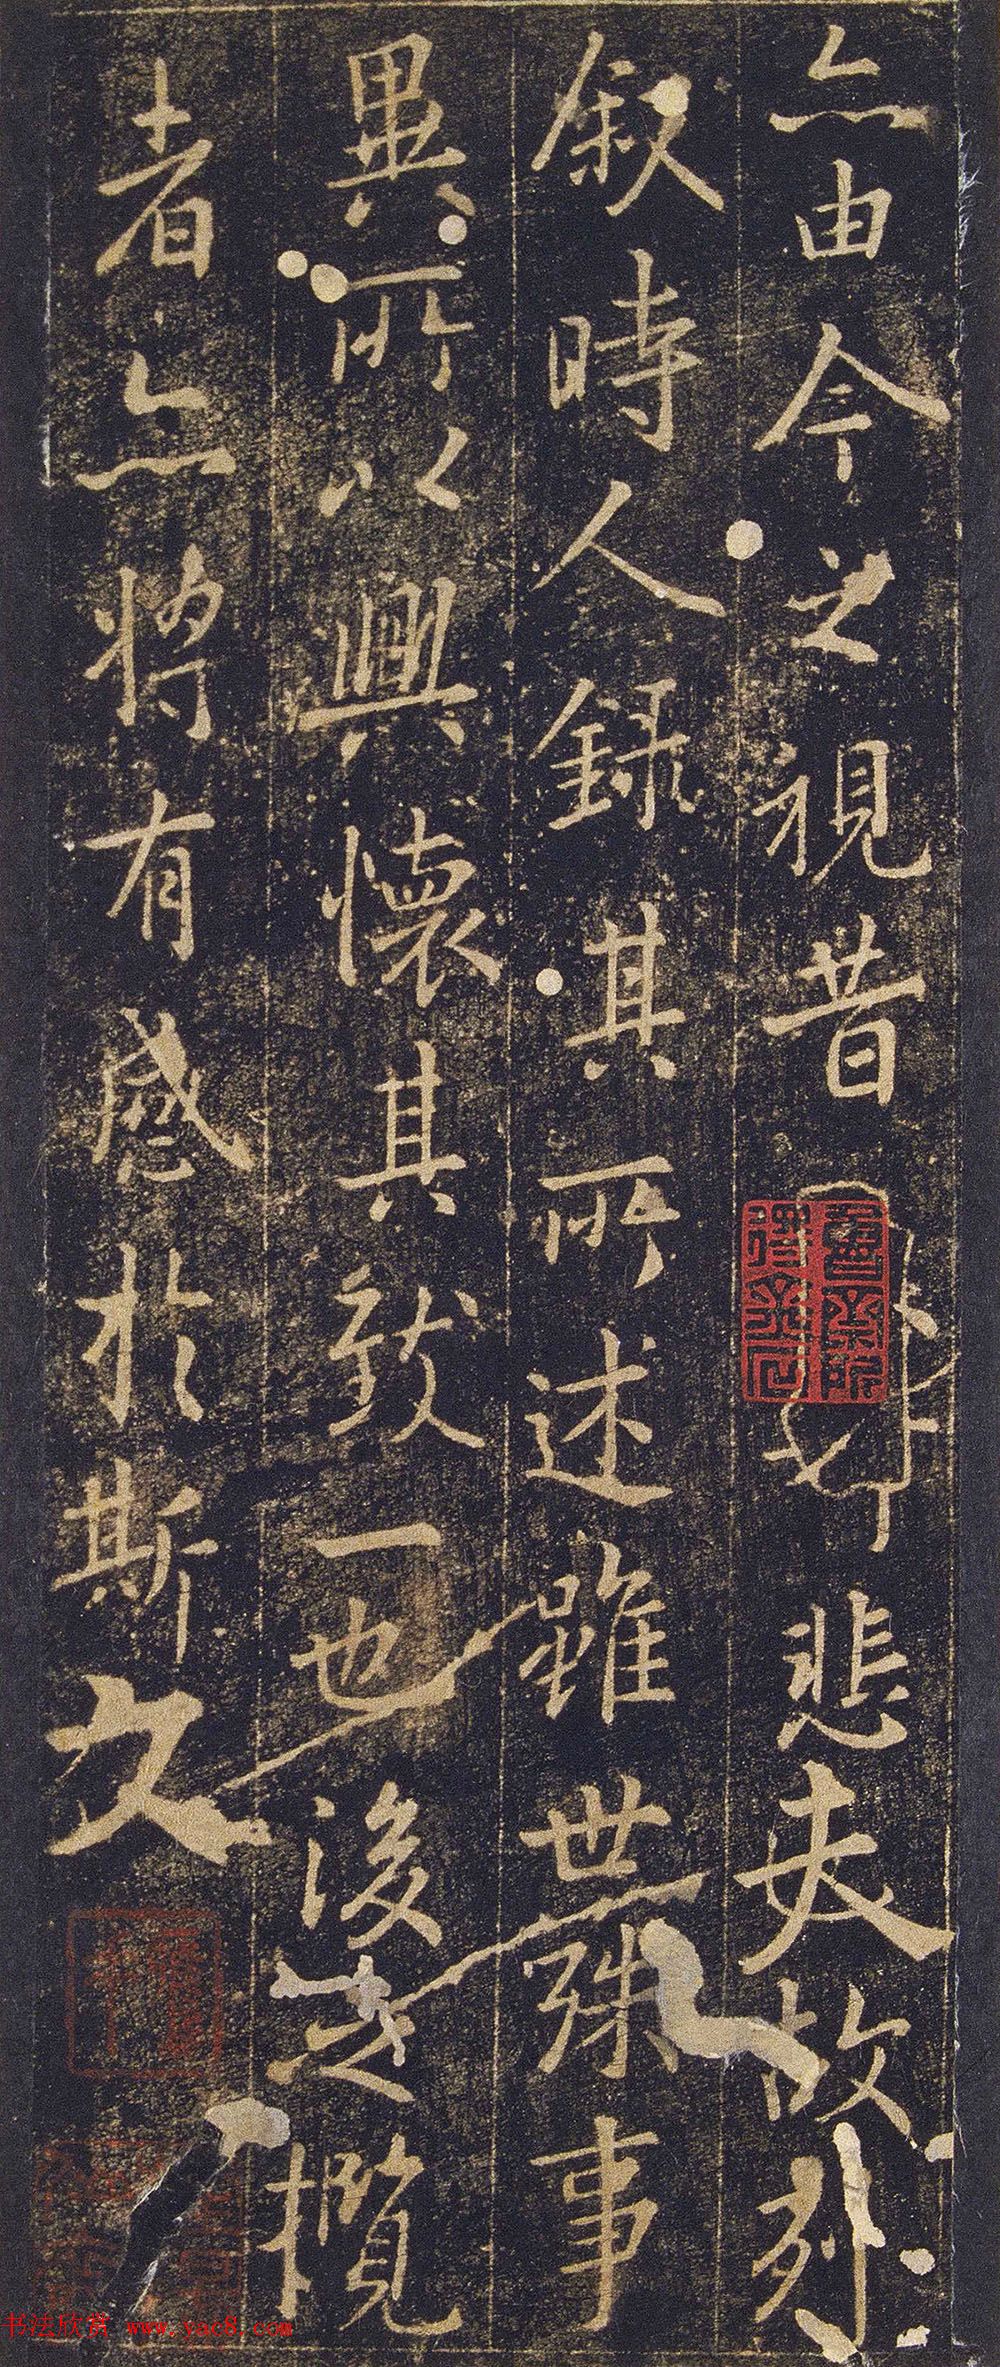 亦由今之視昔悲夫故列
叙時人録其所述雖世殊事
異所以興懷其致一也後之攬
者亦將有感於斯文
书法欣赏 www.yac8.com